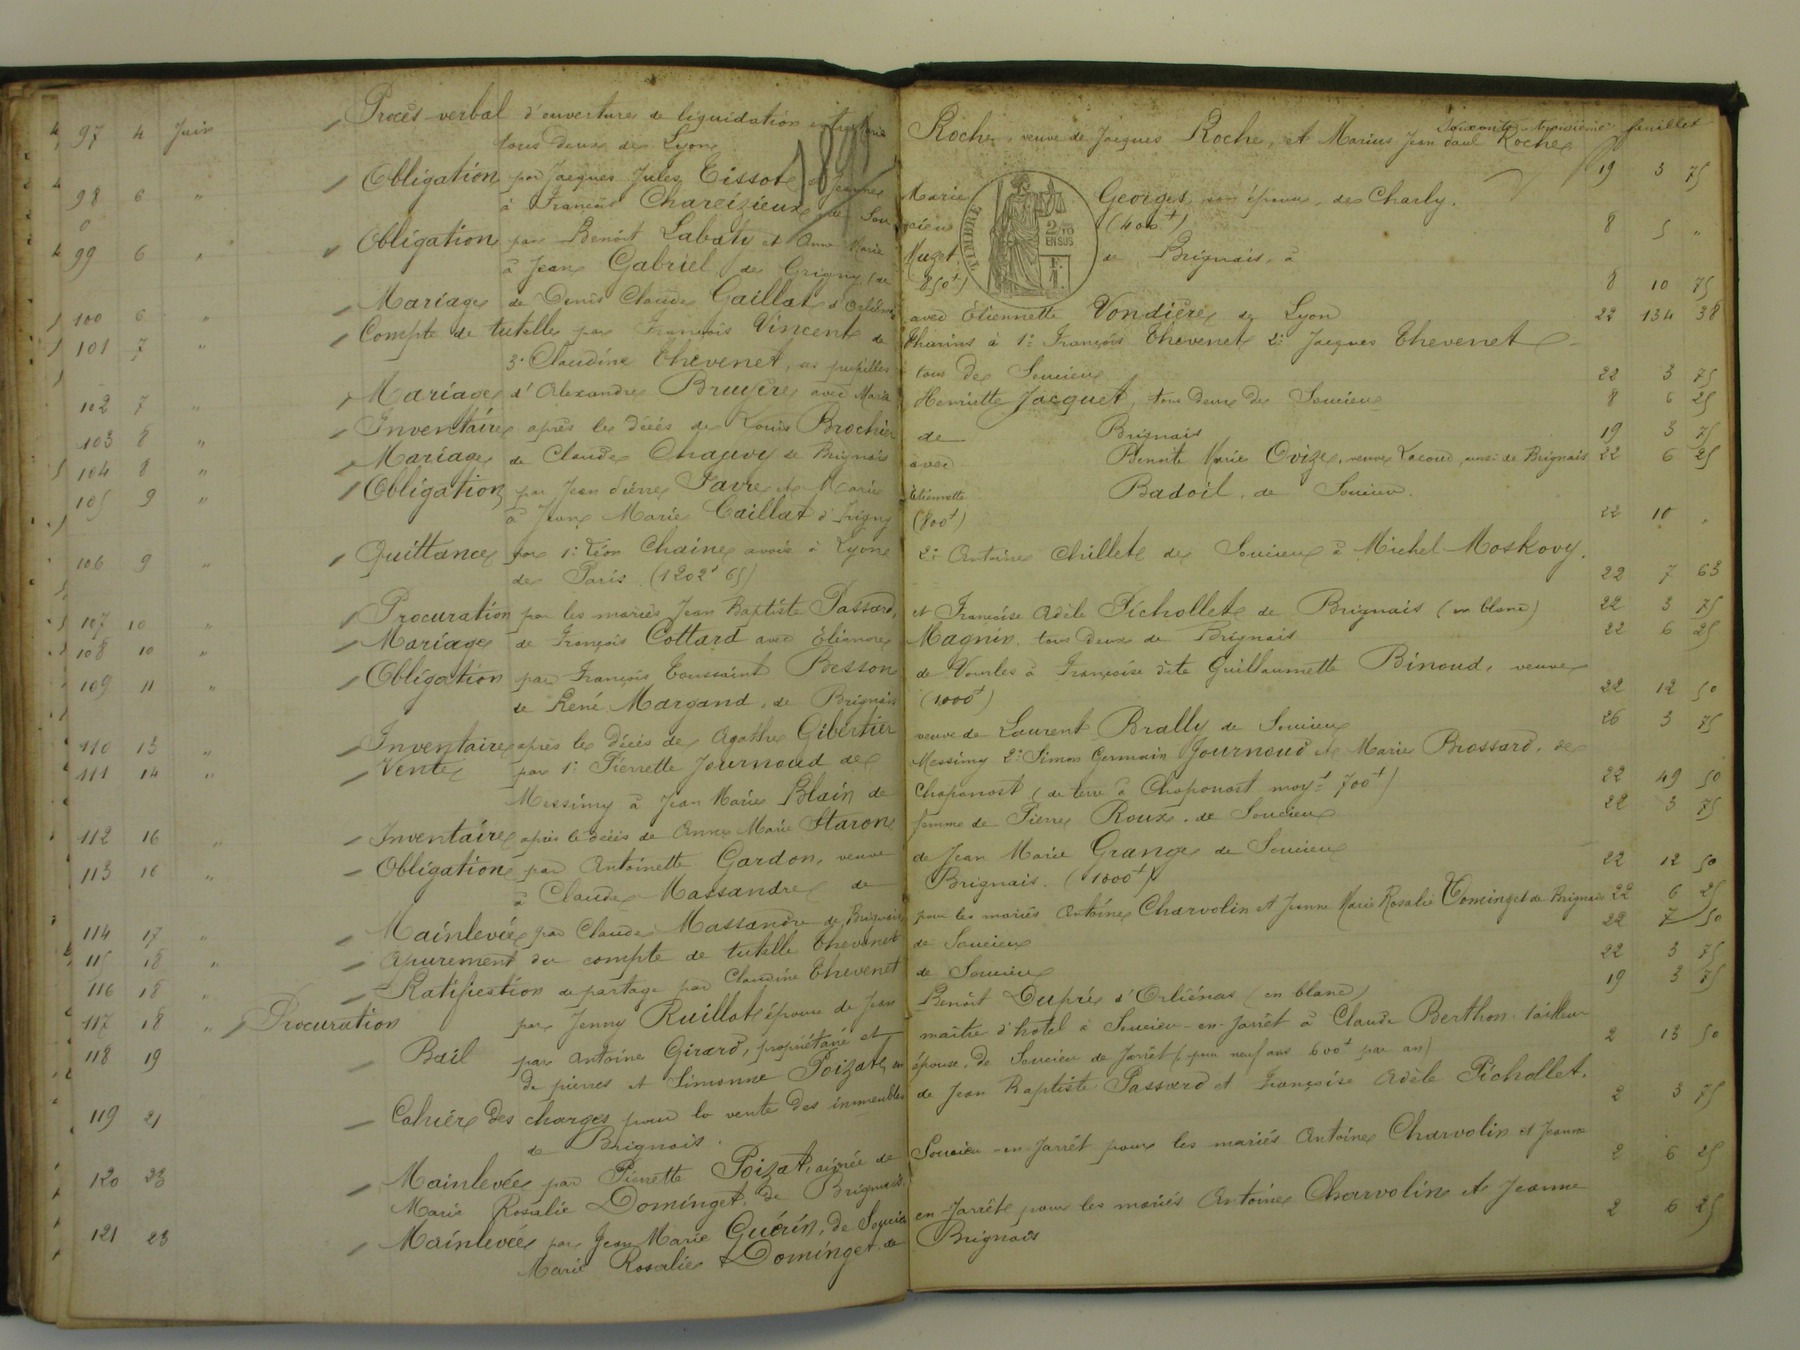 Soixante-troisième feuillet
97 4 Juin Procès-verbal d'ouverture de liquidation entre Marie Roche, veuve de Jacques Roche, et Marius Jean Paul Roche
tous deux de Lyon 19 3 75
98 6 " Obligation par Jacques Jules Tissot et Jeanne Marie Georges son épouse, de Charly.
à François Chareizieux de Soucieu (400f) 8 5 "
TIMBRE
2/10 EN SUS
1F.
99 6 " Obligation par Benoît Labaty et Anne Marie Muzet, de Brignais, à
à Jean Gabriel de Grigny (de 850f) 8 10 75
100 6 " Mariage de Denis Claude Gaillat d'Orliénas avec Etiennette Vondière de Lyon 22 134 38
101 7 " Compte de tutelle par François Vincent de Thurins à 1° François Thevenet 2° Jacques Thevenet
3° Claudine Thevenet, ses pupilles tous de Soucieu 22 3 75
102 7 " Mariage d'Alexandre Bruyère avec Marie Henriette Jacquet, tous deux de Soucieu 8 6 25
103 8 " Inventaire après le décès de Louis Brochier de Brignais 19 3 75
104 8 " Mariage de Claude Chauvy de Brignais avec Benoite Marie Ovize, veuve Lacoud, aussi de Brignais 22 6 25
105 9 " Obligation par Jean Pierre Favre et Marie Etiennette Badoil, de Soucieu.
à Jean Marie Caillat d'Irigny (800f) 22 10 "
106 9 " Quittance par 1° Léon Chaine avoué à Lyon 2° Antoine Chillet de Soucieu à Michel Moskovy.
de Paris (1202f 65) 22 7 63
107 10 " Procuration par les mariés Jean Baptiste Passard, et Françoise Adèle Pichollet de Brignais (en blanc) 22 3 75
108 10 " Mariage de François Cottard avec Éléonore Magnin tous deux de Brignais 22 6 25
109 11 " Obligation par François Toussaint Besson de Vourles à Françoise dite Guillaumette Binoud, veuve
de René Margand, de Brignais (1000f) 22 12 50
110 13 " Inventaire après le décès de Agathe Gibertier veuve de Laurent Brally de Soucieu 26 3 75
111 14 " Vente par 1° Pierrette Journoud de Messimy 2° Simon Germain Journoud et Marie Brossard, de
Messimy à Jean Marie Blain de Chaponost (de terre à Chaponost moyt 700f) 22 49 50
112 16 " Inventaire après le décès de Anne Marie Staron femme de Pierre Roux, de Soucieu 22 3 75
113 16 " Obligation par Antoinette Gardon, veuve de Jean Marie Grange de Soucieu
à Claude Massandre de Brignais. (1000f) 22 12 50
114 17 " Mainlevée par Claude Massandre de Brignais pour les mariés Antoine Charvolin et Jeanne Marie Rosalie Dominget de Brignais 22 6 25
115 18 " Apurement du compte de tutelle Thevenet de Soucieu 22 7 50
116 18 " Ratification de partage par Claudine Thevenet de Soucieu 22 3 75
117 18 " Procuration par Jenny Ruillat épouse de Jean Benoît Dupré d'Orliénas (en blanc) 19 3 75
118 19 Bail par Antoine Girard, propriétaire et maître d'hôtel à Soucieu-en-Jarrêt à Claude Berthon tailleur
de pierres et Simonne Poizat, son épouse, de Soucieu de Jarrêt (pour neuf ans 600f par an) 2 13 50
119 21 Cahier des charges pour la vente des immeubles de Jean Baptiste Passard et Françoise Adèle Pichollet,
de Brignais. 2 3 75
120 23 Mainlevée par Pierrette Poizat, aînée de Soucieu-en-Jarrêt pour les mariés Antoine Charvolin et Jeanne
Marie Rosalie Dominget de Brignais. 2 6 25
121 23 Mainlevée par Jean Marie Guérin, de Soucieu en-Jarrêt pour les mariés Antoine Charvolin et Jeanne
Marie Rosalie Dominget de Brignais 2 6 25